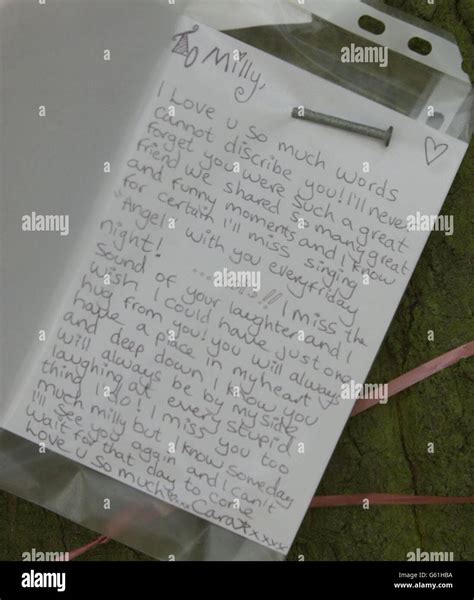 To Milly,
I Love u so much words
cannot discribe you! I'll never
forget you were such a great
friend we shared so many great
and funny moments and I know
for certain I'll miss singing
"Angel" with you everyfriday
night! I miss the
sound of your laughter and I
wish I could have just one
hug from you! you will always
have a place in my heart
and deep down I know you
will always be by my side
laughing at every stupid
thing I do! I miss you too
much milly but I know someday
I'll see you again and I can't
wait for that day to come
Love u so much xx Cara xxxxx
alamy
Image ID: G61HBA
www.alamy.com